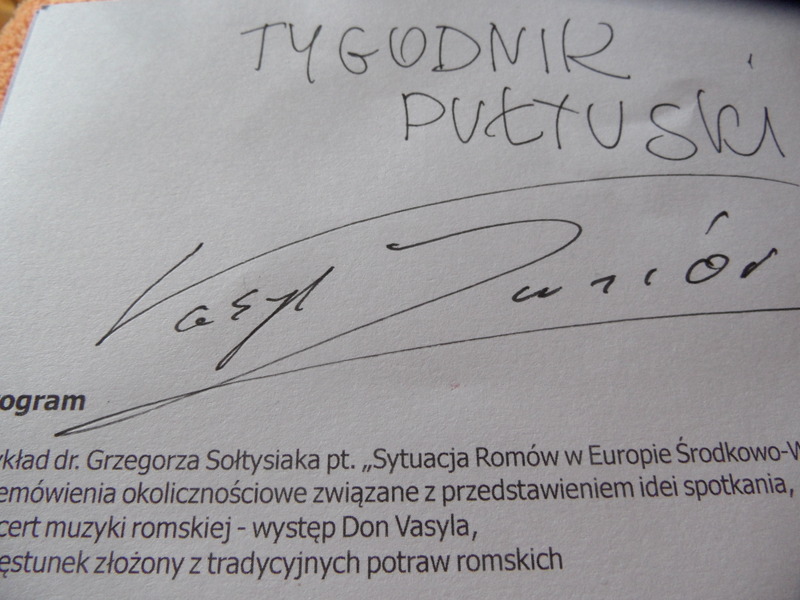 TYGODNIK
PUŁTUSKI
Vasyl Juniór
ogram
kład dr. Grzegorza Sołtysiaka pt. „Sytuacja Romów w Europie Środkowo-W
emówienia okolicznościowe związane z przedstawieniem idei spotkania,
cert muzyki romskiej - występ Don Vasyla,
ęstunek złożony z tradycyjnych potraw romskich